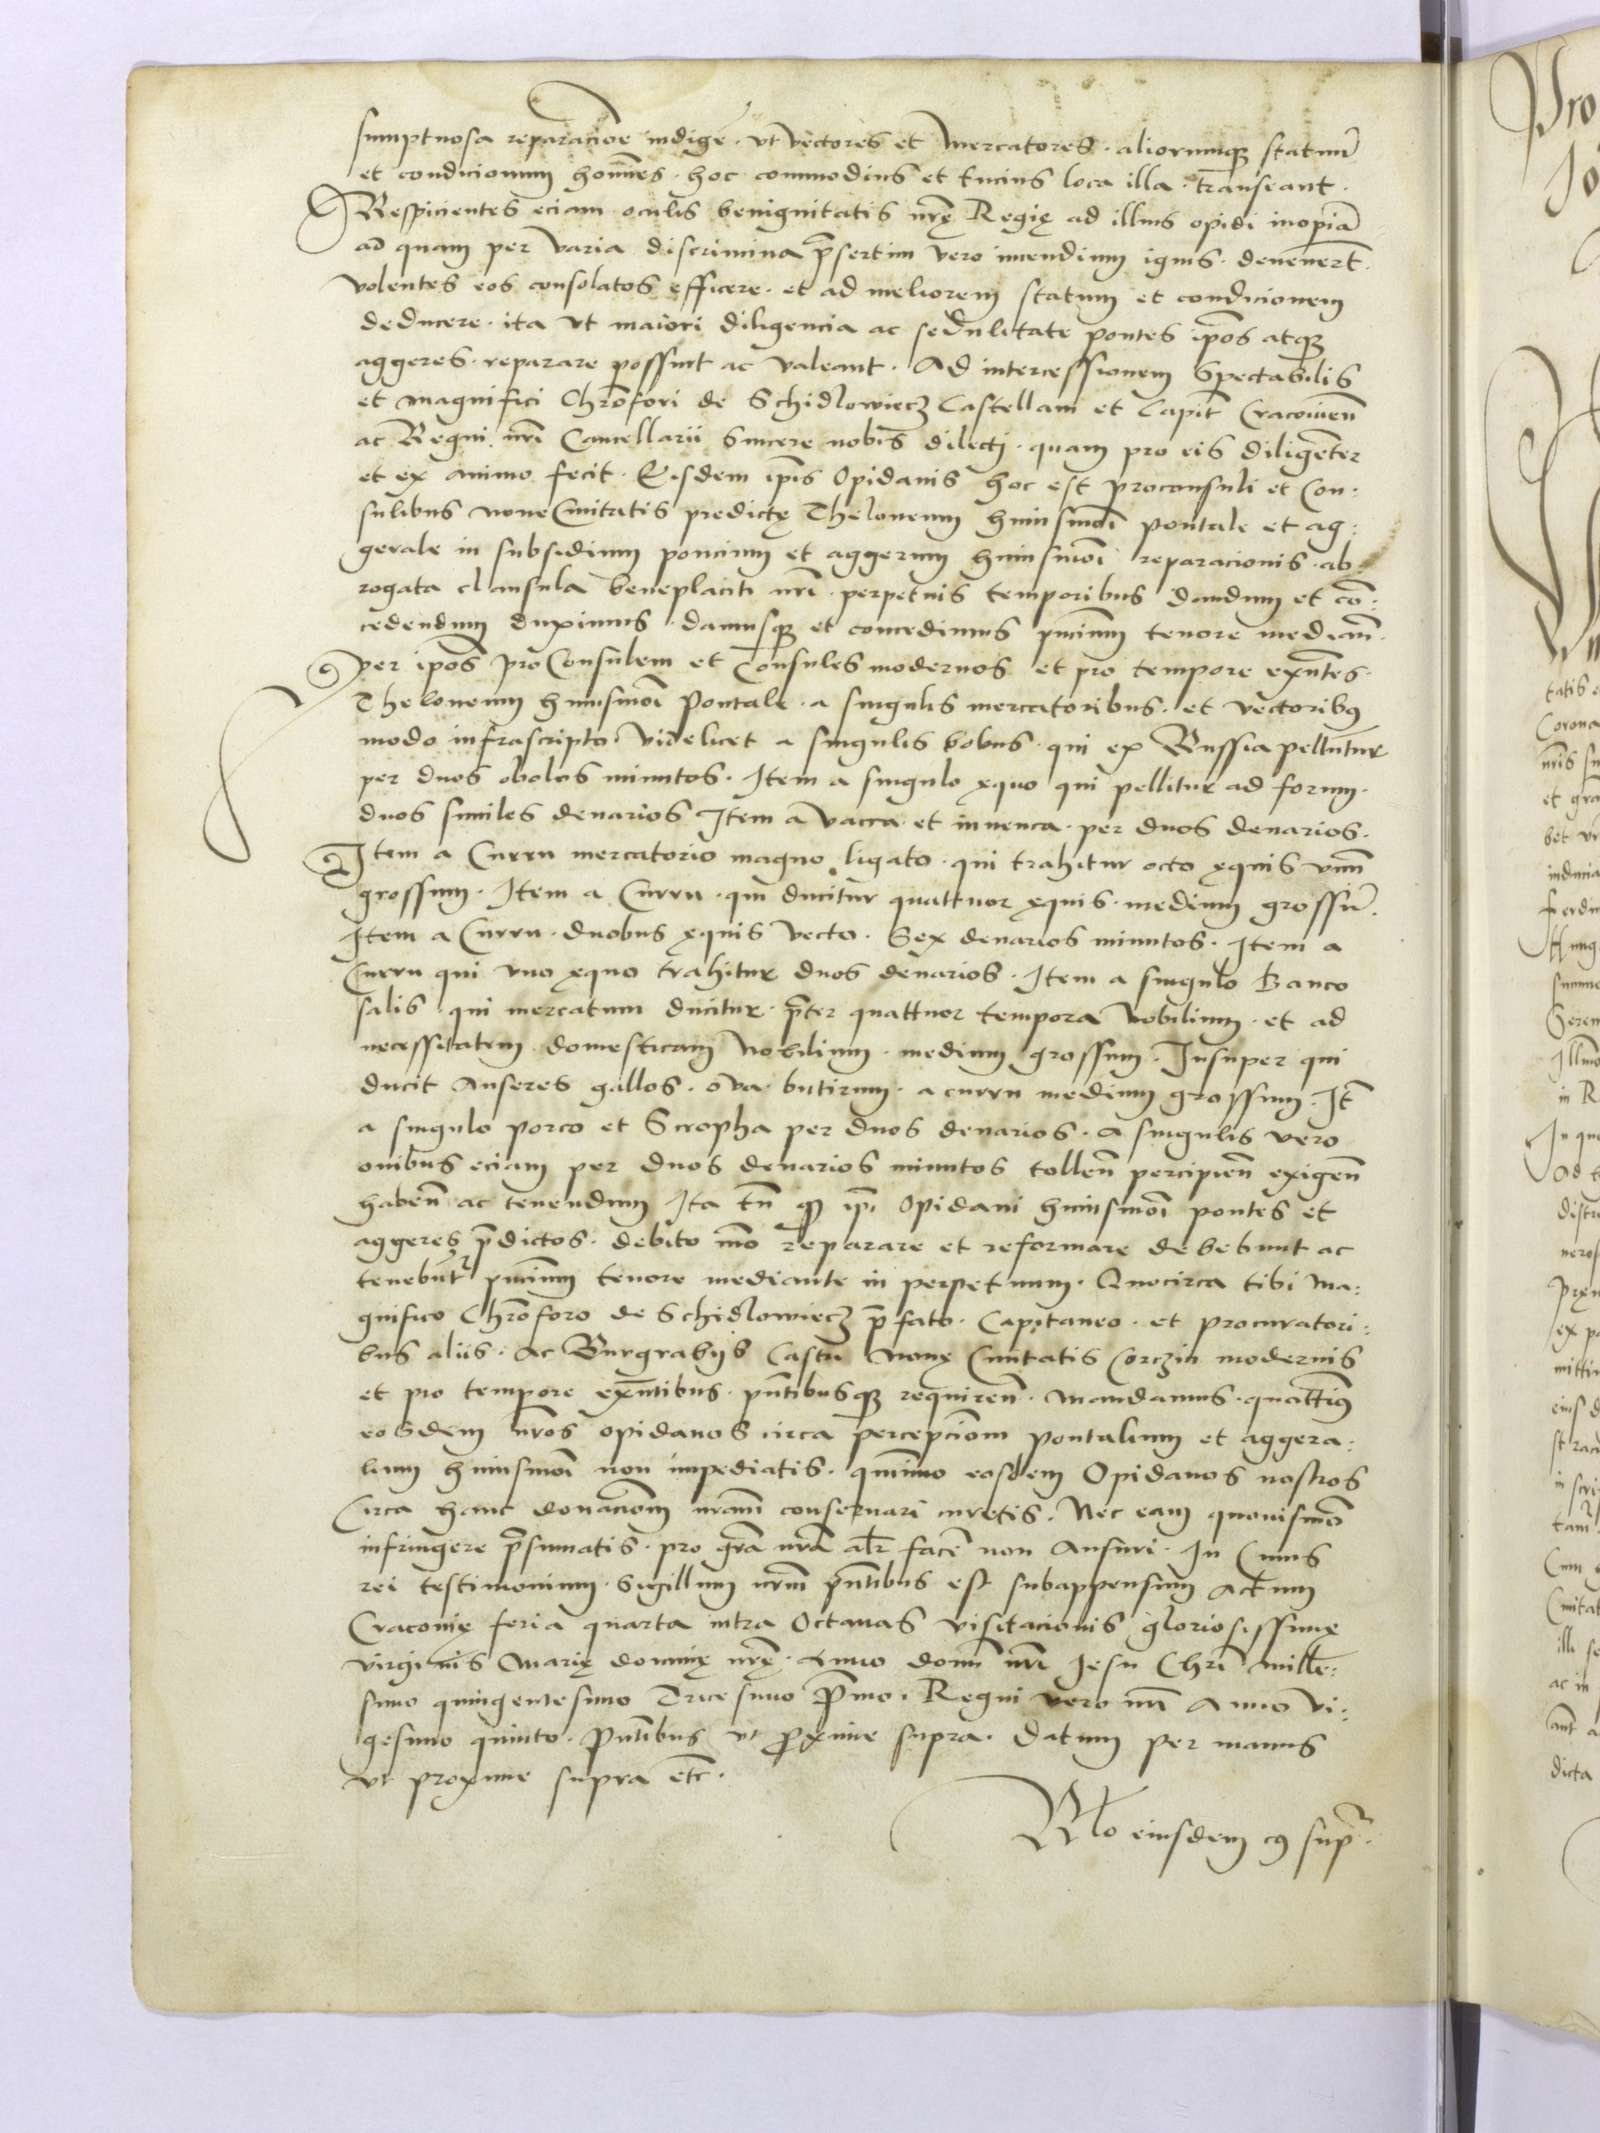 sumptuosa reparacioe indige · vt vectores et Mercatores · aliorumque statuum
et condicionum homines · hoc commodius et tucius loca illa transeant ·
Respicientes eciam oculis benignitatis nrę Regię ad illius opidi inopiā
ad quam per varia discrimina p̄sertim vero incendium ignis · devenert̄ ·
volentes eos consolatos efficere · et ad meliorem statum et condicionem
deducere · ita vt maiori diligencia ac sedulitate pontes ip̄os atque
aggeres · reparare possint ac valeant · Ad intercessionem Spectabilis
et Magnifici Chrōfori de Schidlowiecz Castellani et Capit̄ Cracovien̄
ac Regni nr̄i Cancellarii Sincere nobis dilecti · quam pro eis diligenter
et ex animo fecit · Eisdem ip̄is Opidanis hoc est proconsuli et Con:
sulibus nove Civitatis predictę Theloneum huiusmōi pontale et ag:
gerale in subsidium poncium et aggerum huiusmōi reparacionis · ab:
rogata clausula beneplaciti nr̄i · perpetuis temporibus dandum et cō:
cedendum duximus · damusque et concedimus pn̄cium tenore median̄ ·
per ip̄os proConsulem et Consules modernos et pro tempore exn̄tes ·
Theloneum huiusmōi Pontale · a singulis mercatoribus · et vectoribus
modo infrascripto videlicet a singulis bobus · qui ex Russia pelluntur
per duos obolos minutos · Item a singulo equo qui pellitur ad forum ·
duos similes denarios Item a vacca et iuvenca · per duos denarios ·
Item a Curru mercatorio magno ligato · qui trahitur octo equis vnum
grossum · Item a Curru · qui ducitur quattuor equis · medium grossū ·
Item a Curru · duobus equis vecto · Sex denarios minutos · Item a
Curru qui vno equo trahitur duos denarios · Item a singulo Banco
salis qui mercatum ducitur · p̄ter quattuor tempora Nobilium · et ad
necessitatem domesticam Nobilium · medium grossum · Insuper qui
ducit Anseres gallos · ova · butirum · a curru medium grossum · It̄
a singulo porco et Scropha per duos denarios · A singulis vero
ovibus eciam per duos denarios minutos tollen̄ percipien̄ exigen̄
haben̄ ac tenendum Ita tn̄ q̄ ip̄i Opidani huiusmōi pontes et
aggeres p̄dictos · debito mō reparare et reformare debebunt ac
tenebunt̄ pn̄cium tenore mediante in perpetuum · Quocirca tibi Ma:
gnifico Chrōforo de Schidlowiecz p̄fato · Capitaneo · et procuratori:
bus aliis · Ac Burgrabiis Castri Novę Civitatis Corczin modernis
et pro tempore exn̄tibus · pn̄tibusque requiren̄ · Mandamus · quattinus
eosdem nr̄os opidanos circa percepciom̄ pontalium et aggera:
lium huiusmōi non impediatis · quinimo eosdem Opidanos nostros
Circa hanc donaciom̄ nr̄am conservari curetis · Nec eam quovismō
infringere p̄sumatis · pro gr̄a nr̄a al̄r facē non Ausuri · In Cuius
rei testimonium · Sigillum nr̄m pn̄tibus est subappensum Actum
Cracovię feria quarta intra Octavas visitacionis gloriosissimę
virginis Marię dominę nrę · Anno domi nr̄i Jesu Chr̄i Mille:
simo quingentesimo Tricesimo P̄mo · Regni vero nr̄i Anno Vi:
gesimo quinto · Pn̄tibus vt proxime supra · Datum per manus
vt proxime supra etc̄ ·
Rlo eiusdem cus supr̄ ·